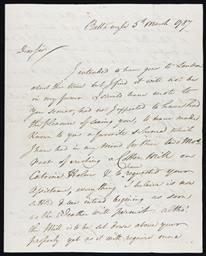 5th March 1787
Dear Sir,
I intended to have gone to London
about this time but I find it will not be
in my power. I should have wrote to
you sooner, had not I expected to have had
the pleasure of seeing you, to have made
known to you a favorite scheme which
I have had in my mind for these two
Mos. of erecting a Cotton Mill on
&c. I requested your
everything I believe is now
and I intend begining as soon
as the Weather will permit altho'
the Mill is to be set down above your
property yet as it will require some